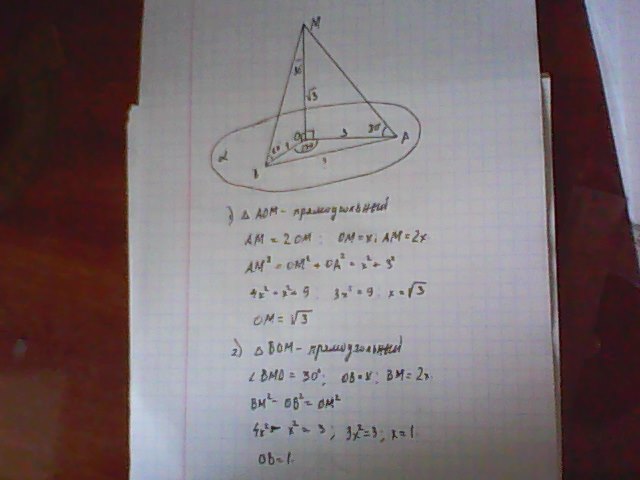 M
30°
√3
O
3
30°
A
α
60°
1
120°
B
?
1) △ AOM - прямоугольный
AM = 2 OM; OM = x; AM = 2x
AM² = OM² + OA² = x² + 3²
4x² - x² = 9; 3x² = 9; x = √3
OM = √3
2) △ BOM - прямоугольный
∠ BMO = 30°; OB = x; BM = 2x
BM² - OB² = OM²
4x² - x² = 3; 3x² = 3; x = 1
OB = 1